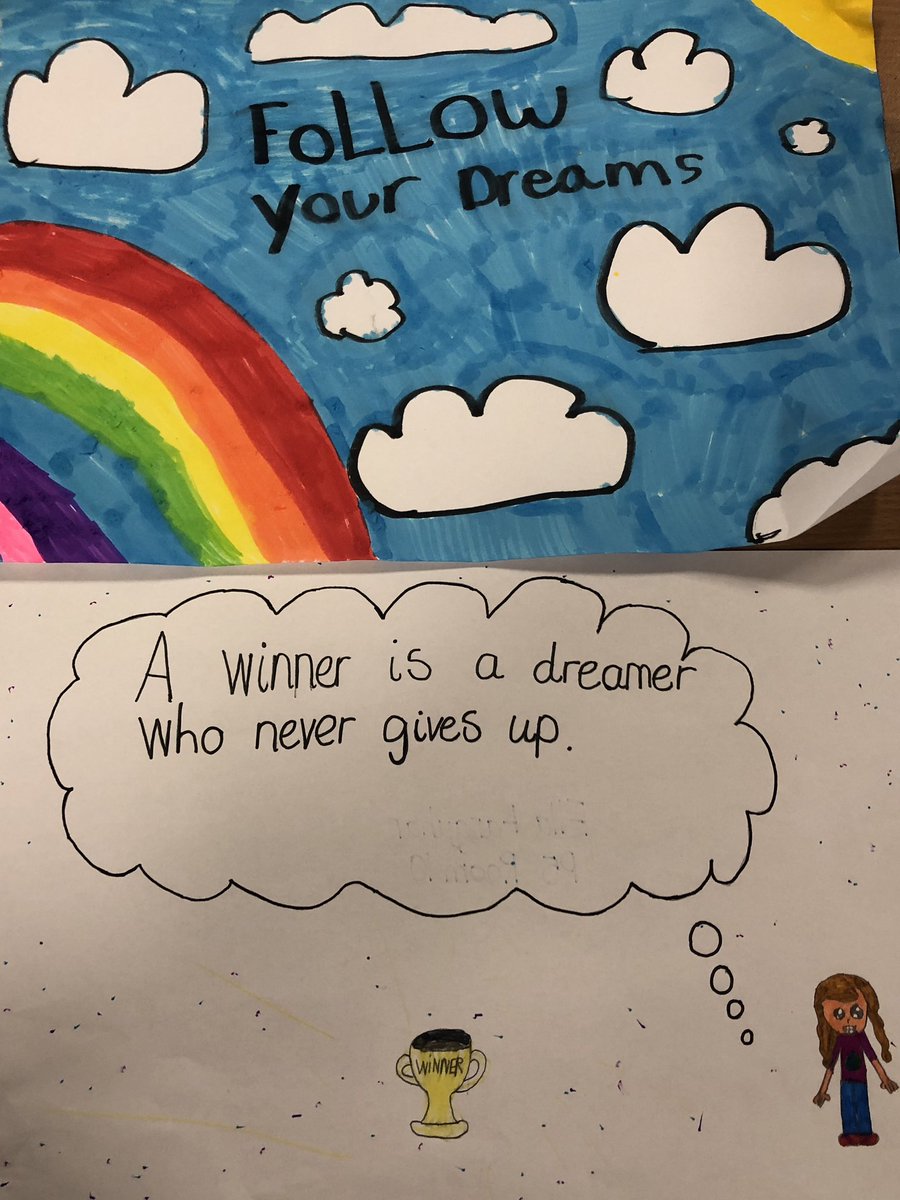 FoLLow
your Dreams
A winner is a dreamer
who never gives up.
WINNER